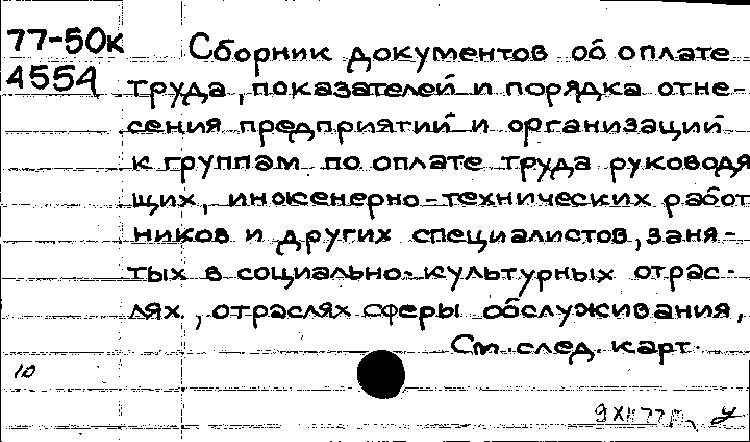 77-50к Сборник документов об оплате
4554 труда, показателей и порядка отне-
сения предприятий и организаций
к группам по оплате труда руководя
щих, инженерно-технических работ
ников и других специалистов, заня-
тых в социально-культурных отрас-
лях, отраслях сферы обслуживания,
См. след. карт.
10
9 XII 77